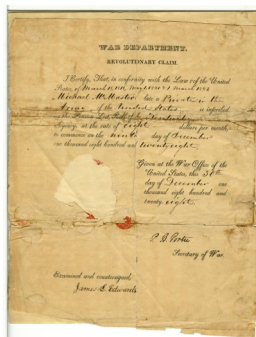 WAR DEPARTMENT.
REVOLUTIONARY CLAIM.
I Certify, That, in conformity with the Law of the United
States, of
Michael McMaster late a Private in the
Army of the United States is inscribed
Agency, at the rate of eight dollars per month,
to commence on the ninth day of December
one thousand eight hundred and twenty eight
Given at the War Office of the
United States, this 30th
day of December one
thousand eight hundred and
twenty eight
P. B. Porter
Secretary of War.
Examined and countersigned,
James L. Edwards